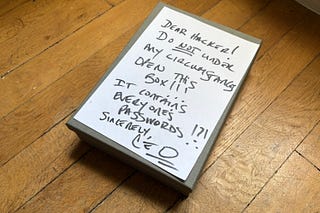 DEAR HACKER!
DO NOT UNDER
ANY CIRCUMSTANCE
OPEN THIS
BOX!!!
IT CONTAINS
EVERYONES
PASSWORDS !?!
SINCERELY,
CEO